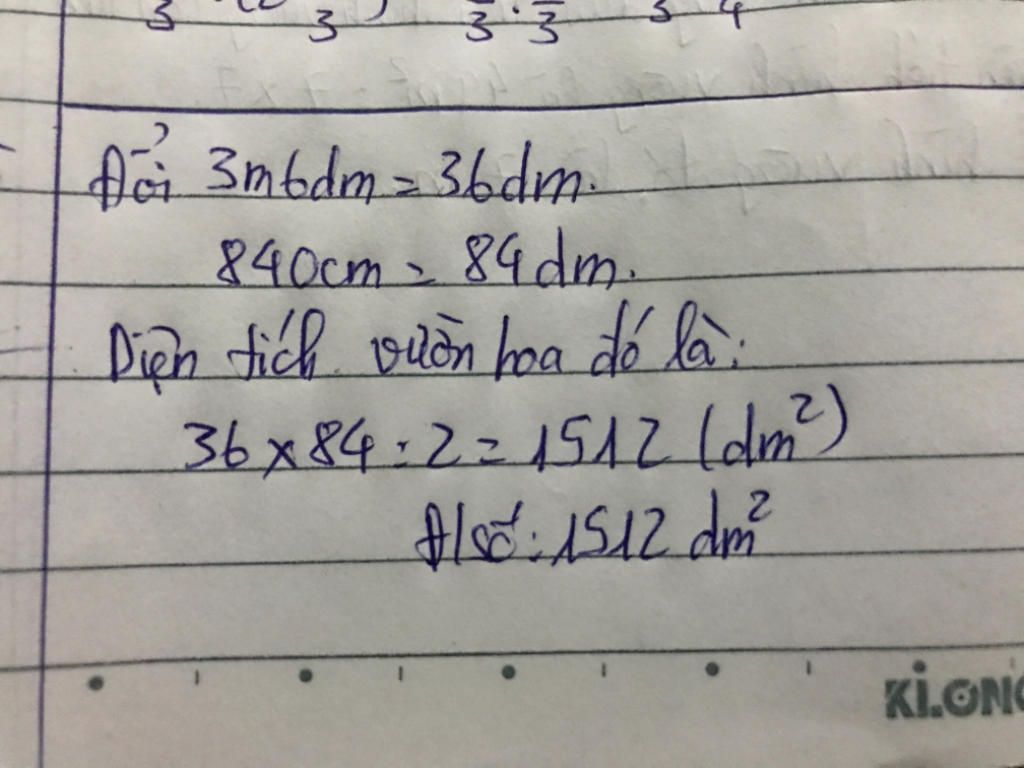 Đổi 3m6dm = 36dm.
840cm = 84dm.
Diện tích vườn hoa đó là:
36 x 84 : 2 = 1512 (dm²)
Đ/số: 1512 dm²
KLONG